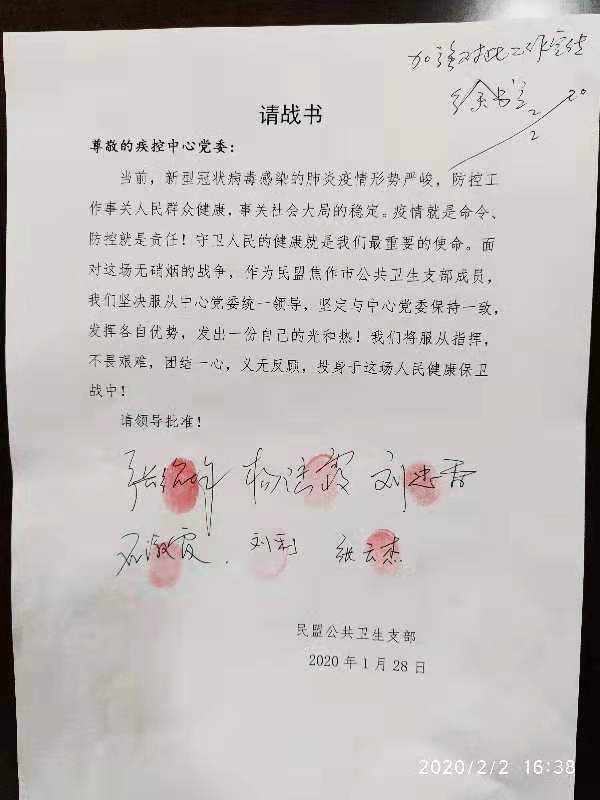 加强对此工作宣传
2/2 20
请战书
尊敬的疾控中心党委：
当前，新型冠状病毒感染的肺炎疫情形势严峻，防控工
作事关人民群众健康，事关社会大局的稳定。疫情就是命令、
防控就是责任！守卫人民的健康就是我们最重要的使命。面
对这场无硝烟的战争，作为民盟焦作市公共卫生支部成员，
我们坚决服从中心党委统一领导，坚定与中心党委保持一致，
发挥各自优势，发出一份自己的光和热！我们将服从指挥，
不畏艰难，团结一心，义无反顾，投身于这场人民健康保卫
战中！
请领导批准！
刘忠香
霞 刘利 张云杰
民盟公共卫生支部
2020年1月28日
2020/2/2 16:38